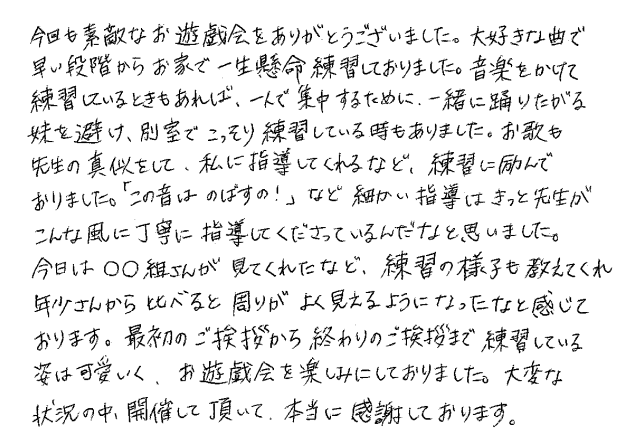 今回も素敵なお遊戯会をありがとうございました。大好きな曲で
早い段階からお家で一生懸命練習しておりました。音楽をかけて
練習しているときもあれば、一人で集中するために、一緒に踊りたがる
妹を避け、別室でこっそり練習している時もありました。お歌も
先生の真似をして、私に指導してくれるなど、練習に励んで
おりました。「この音はのばすの！」など細かい指導はきっと先生が
こんな風に丁寧に指導してくださっているんだなと思いました。
今日は〇〇組さんが見てくれたなど、練習の様子も教えてくれ
年少さんから比べると周りがよく見えるようになったなと感じて
おります。最初のご挨拶から終わりのご挨拶まで練習している
姿は可愛いく、お遊戯会を楽しみにしておりました。大変な
状況の中、開催して頂いて、本当に感謝しております。